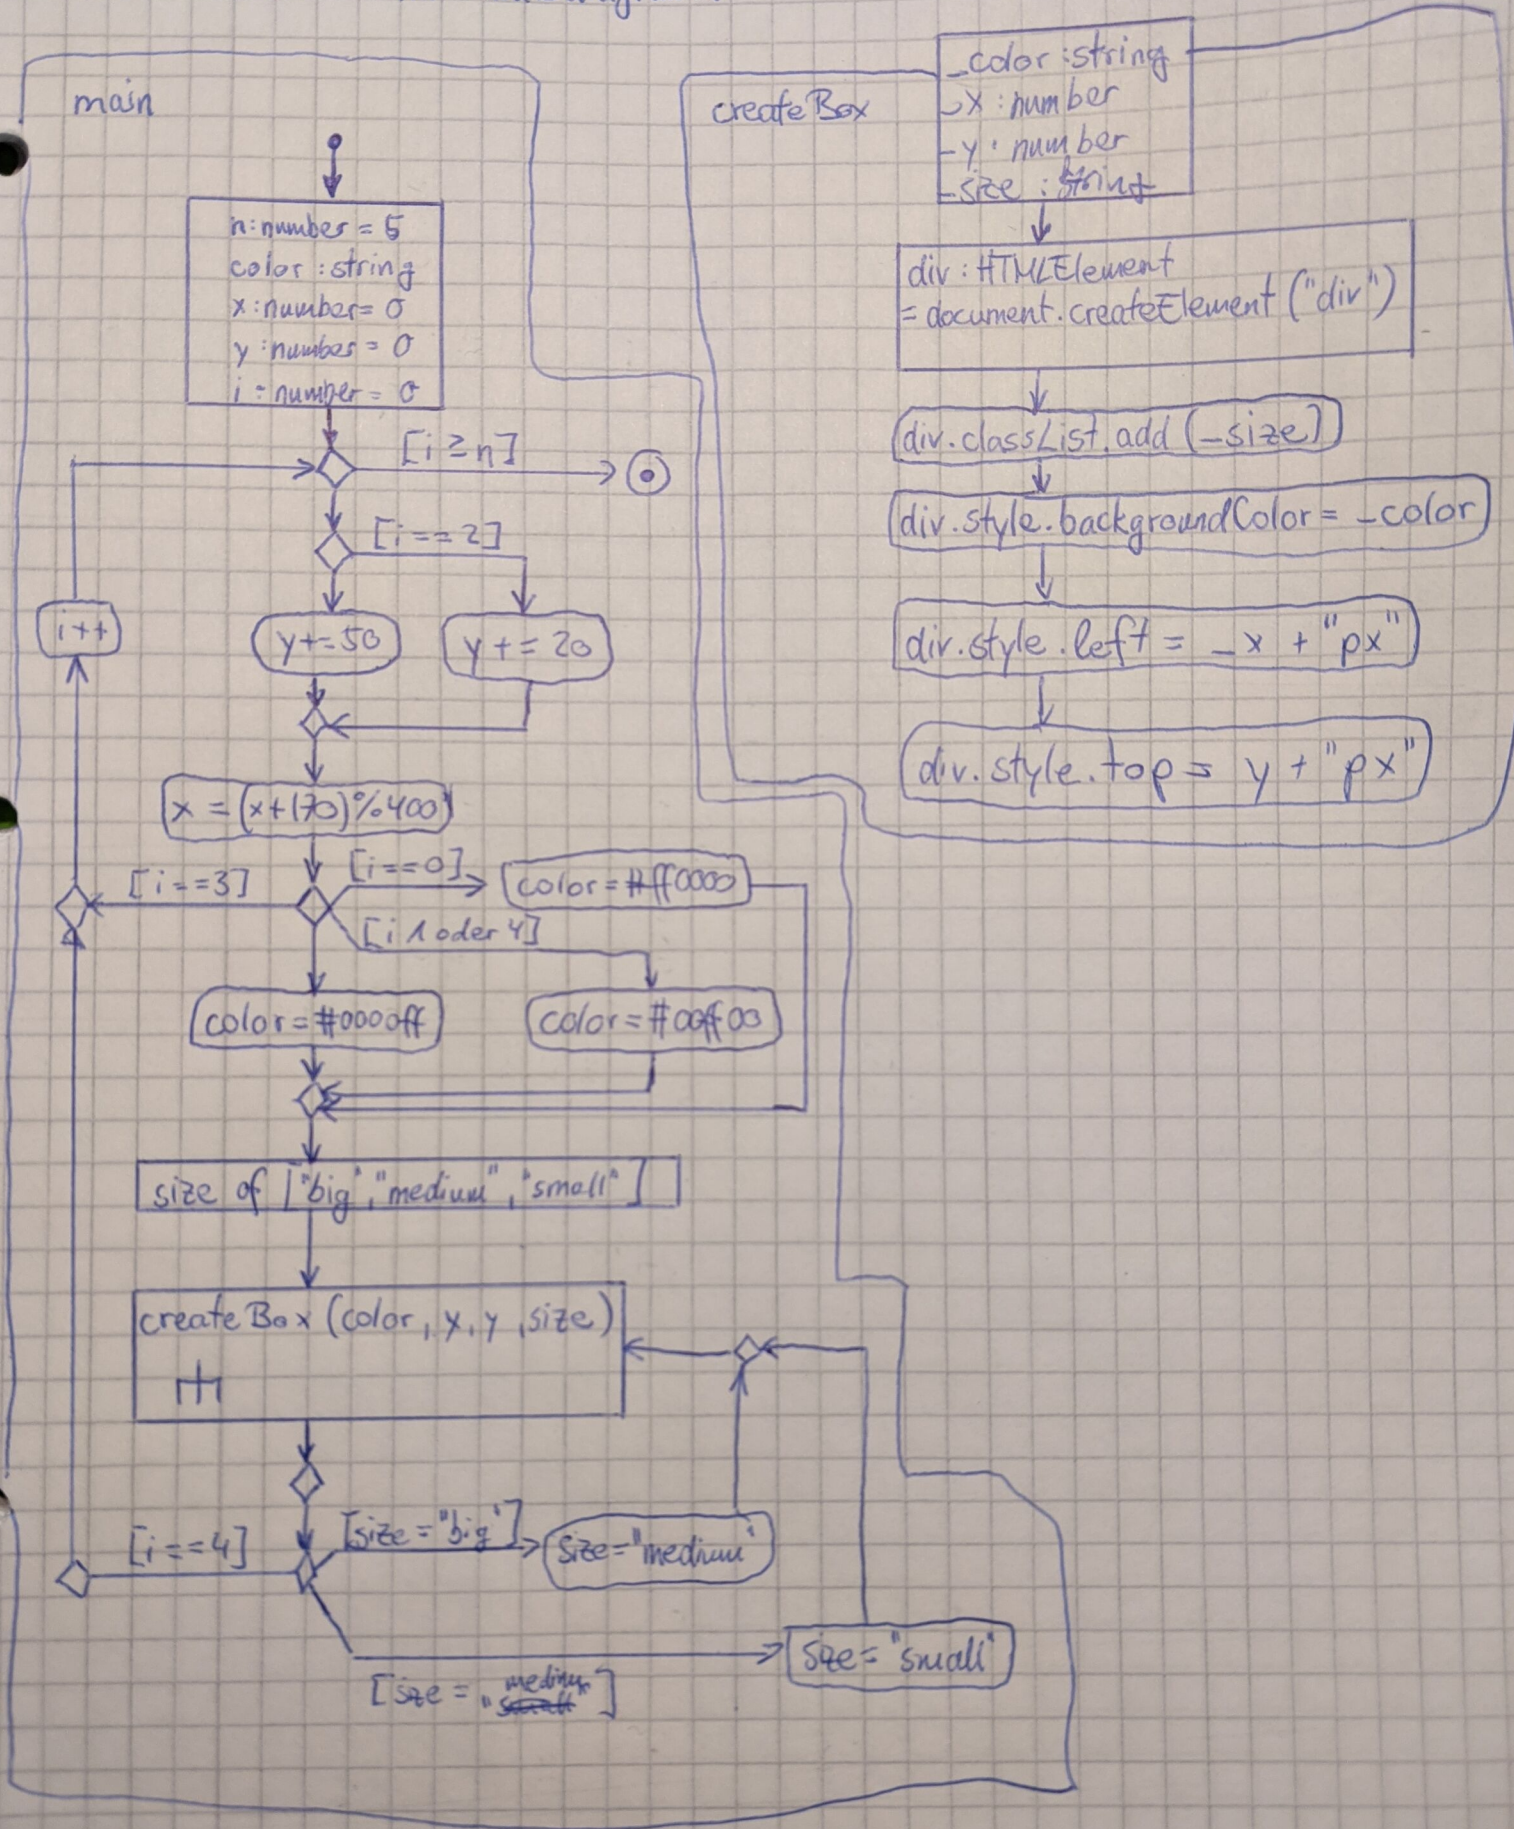 main
n:number = 5
color :string
x:number= 0
y :number = 0
i : number = 0
[i ≥ n]
[i==2]
i++
y+=50
y += 20
x = (x+170)%400
[i==3]
[i==0]
color=#ff0000
[i 1 oder 4]
color=#0000ff
color=#00ff00
size of ["big","medium","small"]
createBox (color, x, y ,size)
[i==4]
[size="big"]
size="medium"
size="small"
[size= "medium"]
createBox
_color :string
_x :number
_y : number
_size : string
div : HTMLElement
= document.createElement ("div")
div.classList.add (_size)
div.style.backgroundColor= _color
div.style.left = _x + "px"
div.style.top= y + "px"